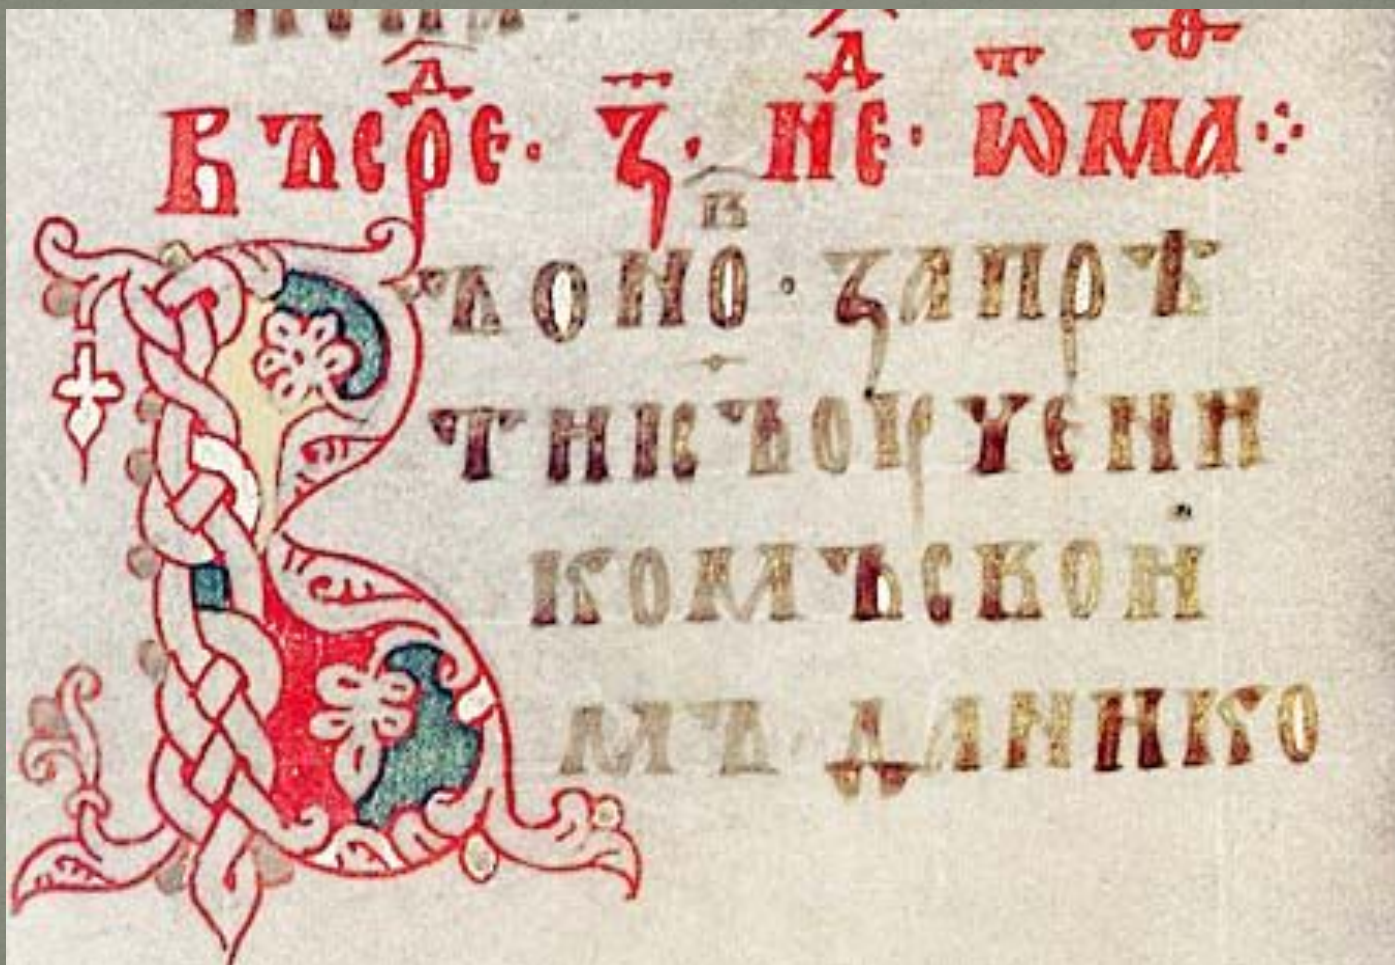 ВЪСРⷣЕ· З҃· НЕⷣ· Ѿ МАⷴ ⁘
ВЪОНОⷡ · ЗАПРѢ
ТИІСЪОУЧЕНИ
КОМЪСВОИ
МЪ·ДАНИКО